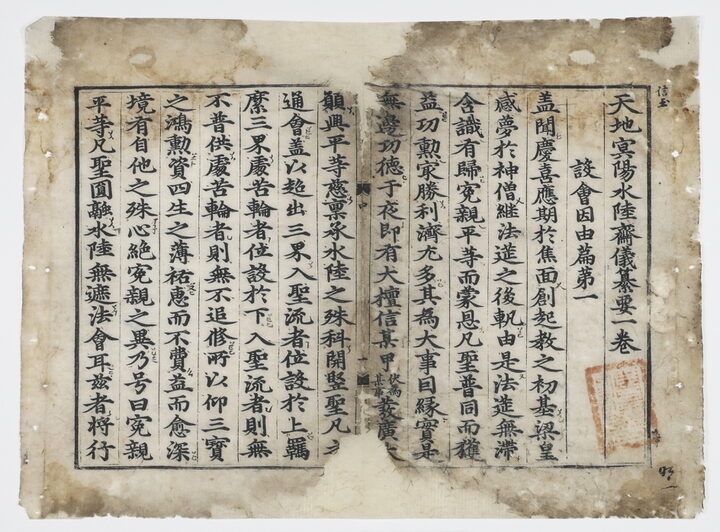 天地冥陽水陸齋儀纂要一卷
設會因由篇第一
盖聞慶喜應期於焦面創起教之初基梁皇
感夢於神僧継法莚之後軌由是法莚無滯
含識有歸寃親平等而蒙恩凡聖普同而獲
益功勳㝡勝利濟尤多其為大事因緣實是
無邊功德于夜即有大檀信某甲伏為某事發廣
願興平等慈稟承水陸之殊科開竪聖凡之
通會盖以超出三界入聖流者位設於上羈
縻三界處苦輪者位設於下入聖流者則無
不普供處苦輪者則無不追修所以仰三寳
之鴻勲資四生之薄祐惠而不費益而愈深
境有自他之殊心絶寃親之異乃号曰寃親
平等凡聖圓融水陸無遮法會耳兹者將行
信